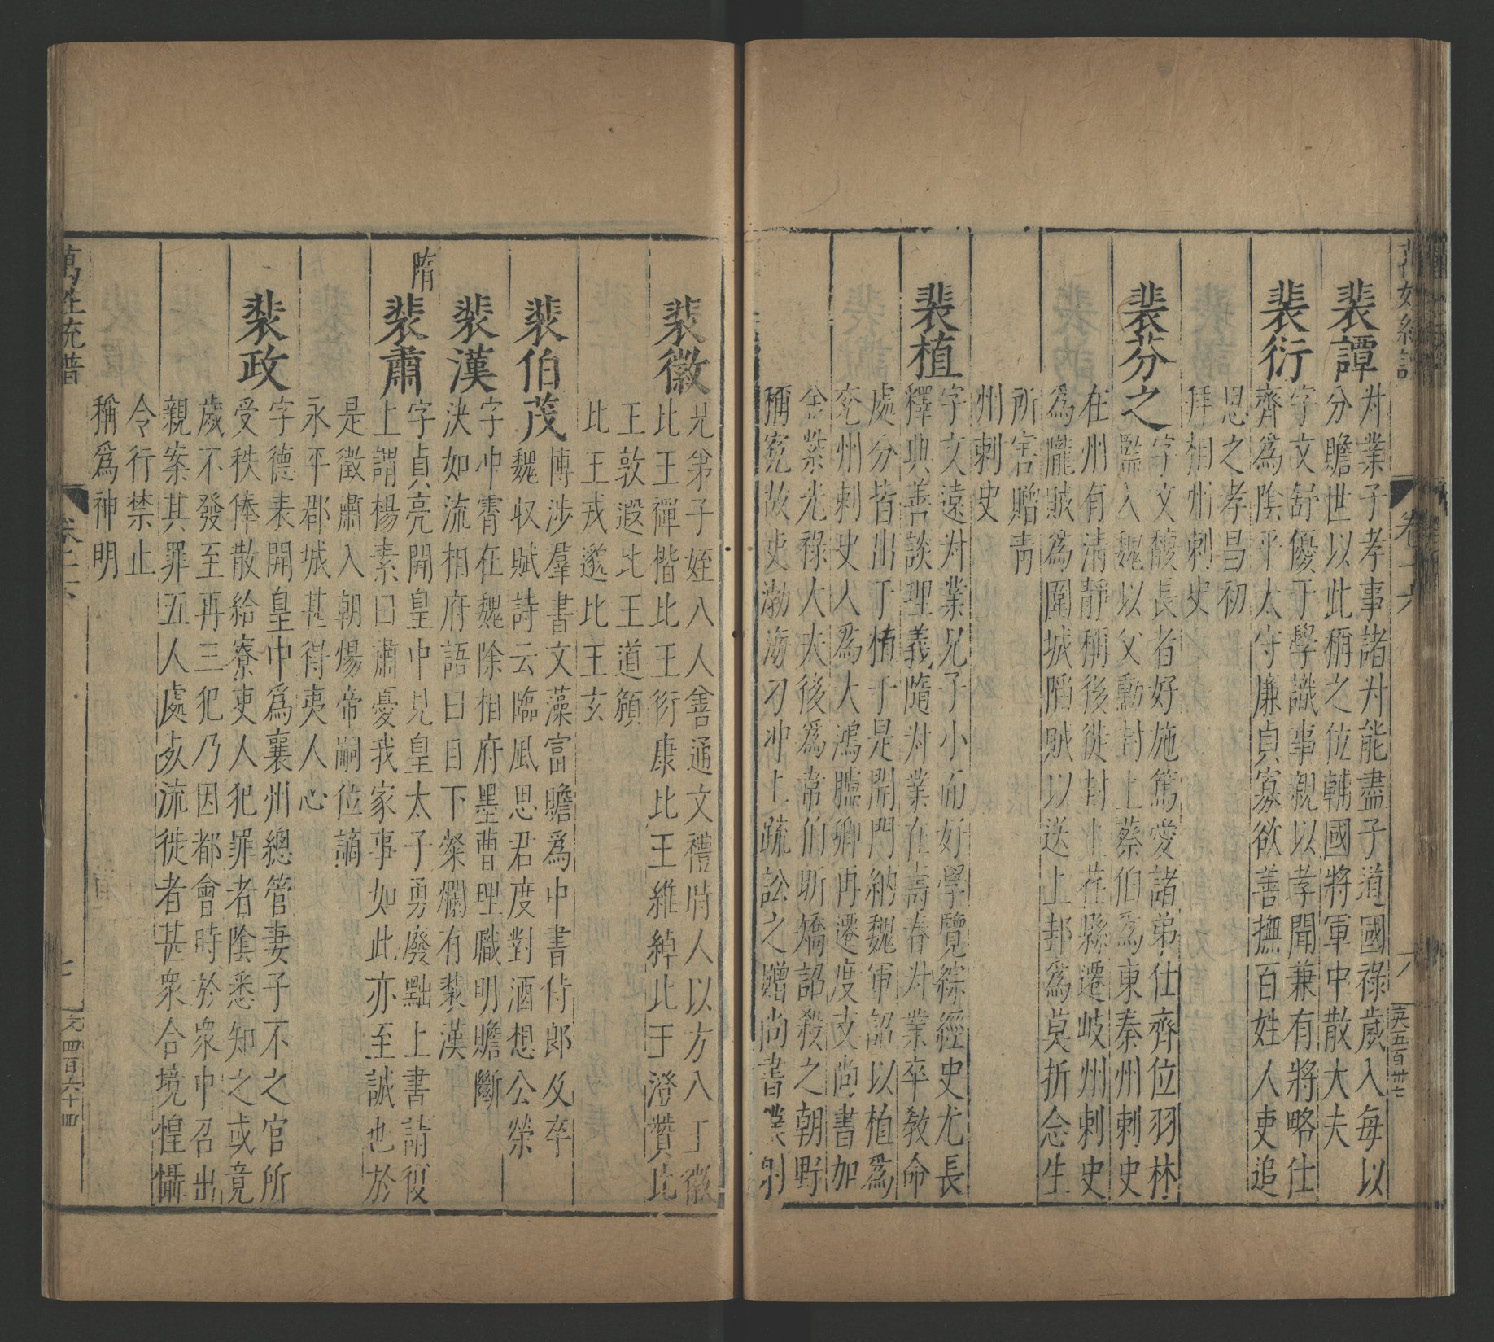 裴譚
叔業子孝事諸叔能盡子道國祿歲入每以
分贍世以此稱之位輔國將軍中散大夫
裴衍
字文舒優于學識事親以孝聞兼有將略仕
齊爲陰平太守廉貞寡欲善撫百姓人吏追
思之孝昌初
拜相州刺史
裴芬之
字文馥長者好施篤愛諸弟仕齊位羽林
監入魏以父勳封上蔡伯爲東秦州刺史
在州有清靜稱後徙封山茌縣遷岐州刺史
爲隴賊爲圍城陷賊以送上邽爲莫折念生
所害贈青
州刺史
裴植
字文遠叔業兄子小而好學覽綜經史尤長
釋典善談理義隨叔業在壽春叔業卒教命
處分皆出于植于是開門納魏軍詔以植爲
兗州刺史入爲大鴻臚卿再遷度支尚書加
金紫光祿大夫後爲常伯昕矯詔殺之朝野
稱寃故吏渤海刁冲上疏訟之贈尚書僕射
裴徽
兄弟子姪八人舍通文禮時人以方八丁徽
比王禪楷比王衍康比王維綽比于澄瓚比
王敦遐比王道頠
比王戎邈比王玄
裴伯茂
博涉羣書文藻富贍爲中書侍郎及卒
魏收賦詩云臨風思君度對酒想公榮
裴漢
字冲霄在魏除相府墨曹理職明贍斷
決如流相府語曰日下粲爛有裴漢
隋
裴肅
字貞亮開皇中見皇太子勇廢黜上書請復
上謂楊素曰肅憂我家事如此亦至誠也於
是徵肅入朝煬帝嗣位謫
永平郡城甚得夷人心
裴政
字德表開皇中爲襄州總管妻子不之官所
受秩俸散給寮吏人犯罪者陰悉知之或竟
歲不發至再三犯乃因都會時於衆中召出
親案其罪五人處死流徙者甚衆合境惶懾
令行禁止
稱爲神明
萬姓統譜
文四百六十四